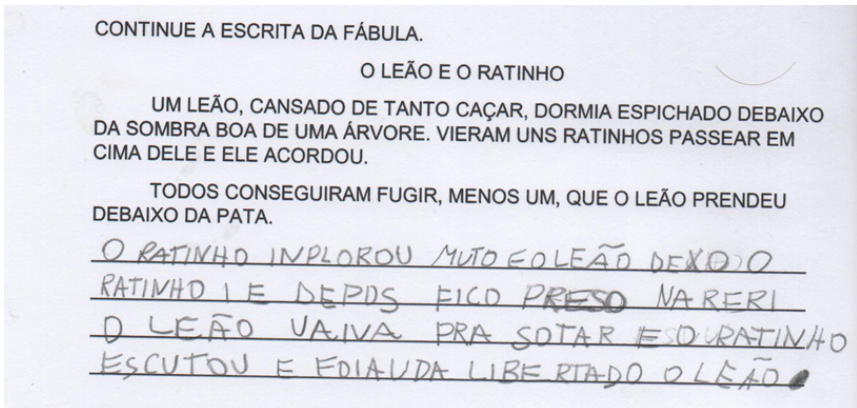 CONTINUE A ESCRITA DA FÁBULA.
O LEÃO E O RATINHO
UM LEÃO, CANSADO DE TANTO CAÇAR, DORMIA ESPICHADO DEBAIXO
DA SOMBRA BOA DE UMA ÁRVORE. VIERAM UNS RATINHOS PASSEAR EM
CIMA DELE E ELE ACORDOU.
TODOS CONSEGUIRAM FUGIR, MENOS UM, QUE O LEÃO PRENDEU
DEBAIXO DA PATA.
O RATINHO INPLOROU MUTO E O LEÃO DEXO O
RATINHO I E DEPOS FICO PRESO NA RERI
O LEÃO UAIVA PRA SOTAR E O RATINHO
ESCUTOU E FOI AUDA LIBERTADO O LEÃO.